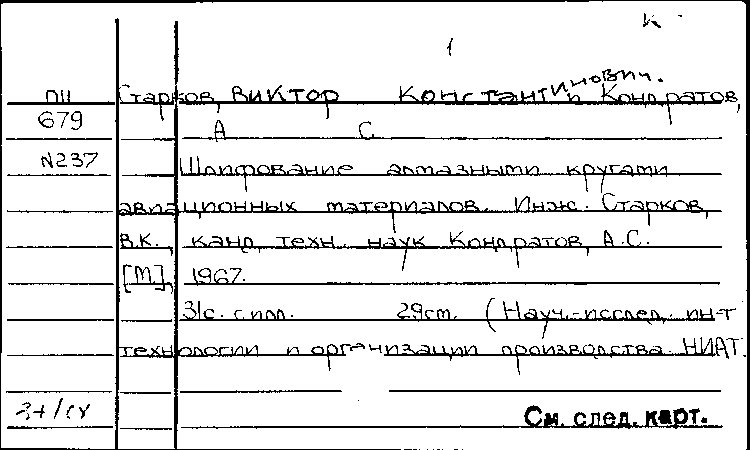 К
1
ПII Старков, Виктор Константинович. и Кондратов,
679 А С
N237 Шлифование алмазными кругами
авиационных материалов. Инж. Старков,
В.К., канд. техн. наук Кондратов, А.С.
[М.], 1967.
31с. с илл. 29cm. (Науч.-исслед. ин-т
технологии и организации производства НИАТ.
См. след. карт.